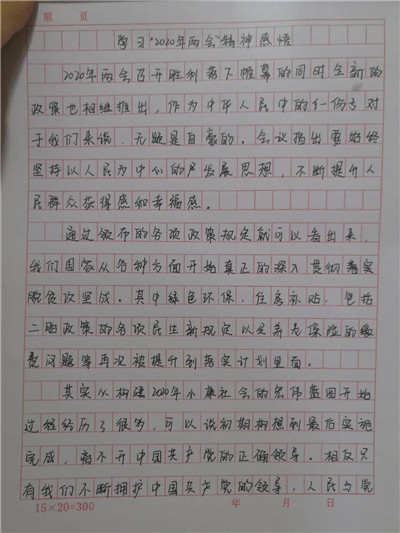 第 页
学习"2020年两会"精神感悟
2020年两会召开胜利落下帷幕的同时全新的
政策也相继推出，作为中华人民中的一份子对
于我们来说，无疑是自豪的。会议指出要始终
坚持以人民为中心的发展思想，不断提升人
民群众获得感和幸福感。
通过颁布的各项政策规定就可以看出来，
我们国家从各种方面开始真正的深入贯彻落实
脱贫攻坚战。其中绿色环保，住房补贴，包括
二胎政策的各项民生新规定以及养老保险的缴
费问题等再次被提升到落实计划里面。
其实从构建2020年小康社会的宏伟蓝图开始
过程经历了很多，可以说初期构想到最后实施
完成，离不开中国共产党的正确领导。相反只
有我们不断拥护中国共产党的领导，人民与党
15×20=300 年 月 日